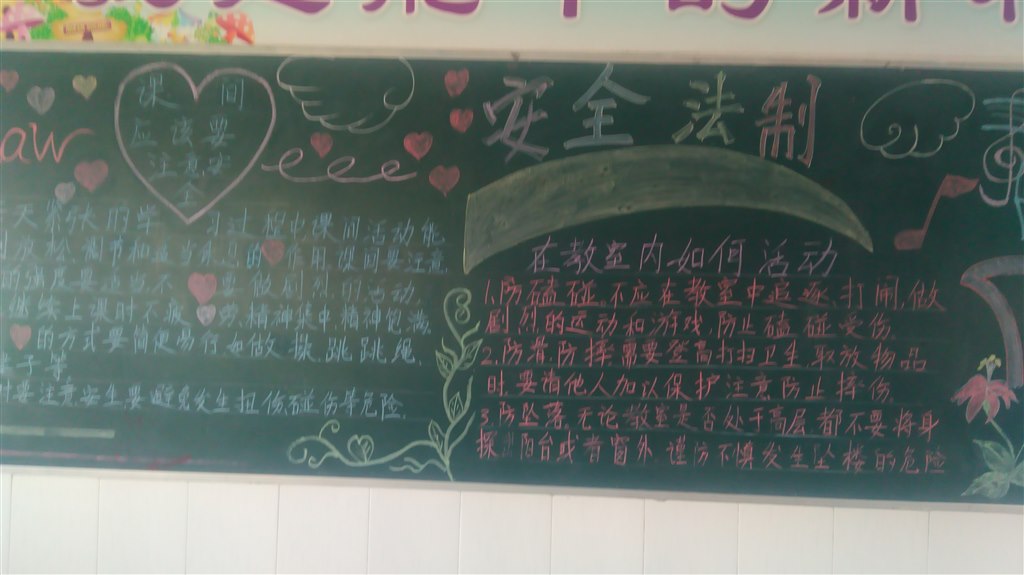 安全法制
aw
课间
应该要
注意安
全
天紧张的学 习过程中课间活动能
到放松,调节和适当休息的 作用,课间要注意.
的强度要适当不 要做剧烈的活动,
继续上课时不疲 劳,精神集中,精神饱满.
的方式要简便易行如做 操,跳跳绳,
毽子等.
时要注意安全要避免发生扭伤碰伤等危险.
在教室内如何活动
1.防磕碰。不应在教室中追逐、打闹,做
剧烈的运动和游戏,防止磕碰受伤.
2.防滑,防摔需要登高打扫卫生,取放物品
时,要请他人加以保护注意防止摔伤.
3.防坠落,无论教室是否处于高层都不要将身
探 阳台或者窗外 谨防不慎发生坠楼的危险